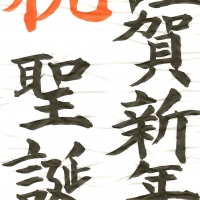 祝聖誕
賀新年